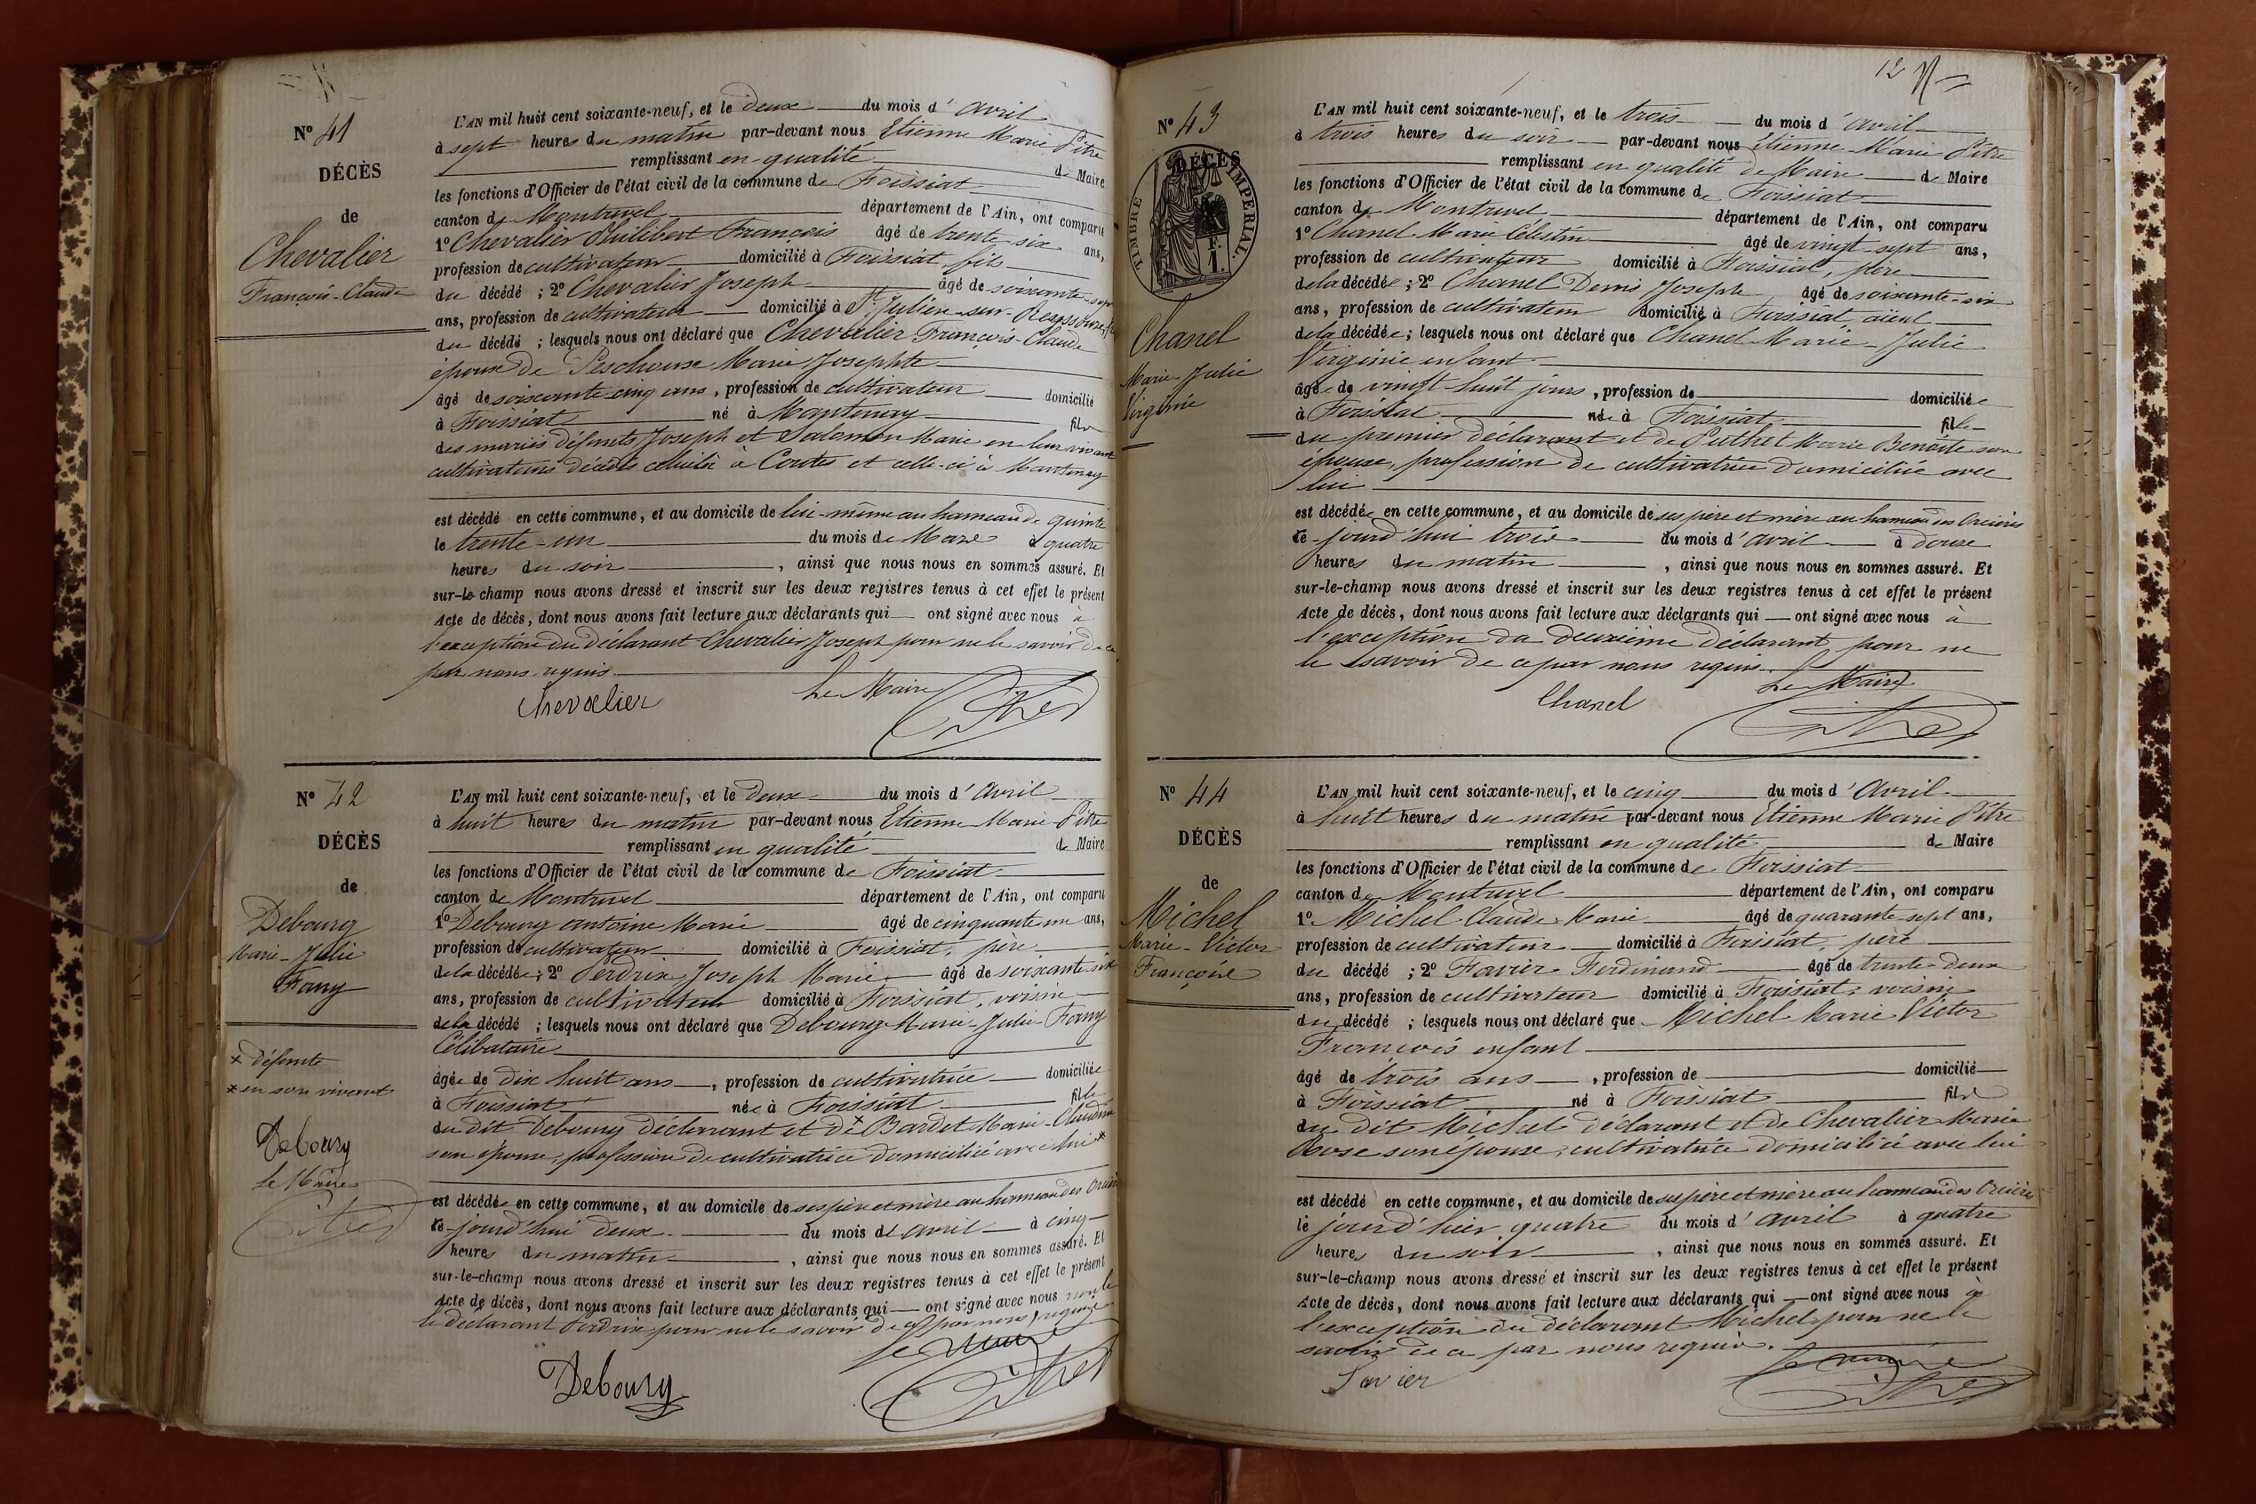 N° 41
DÉCÈS
de
Chevalier
François-Claude
L'AN mil huit cent soixante-neuf, et le deux du mois d'avril
à sept heures du matin par-devant nous Etienne Marie Pitre
remplissant en qualité de Maire
les fonctions d'Officier de l'état civil de la commune de Foissiat
canton de Montrevel département de l'Ain, ont comparu
1° Chevalier Philibert François âgé de trente-six ans,
profession de cultivateur domicilié à Foissiat, fils
du décédé ; 2° Chevalier Joseph âgé de soixante-sept
ans, profession de cultivateur domicilié à St Julien-sur-Reyssouze,
du décédé ; lesquels nous ont déclaré que Chevalier François-Claude
époux de Marie Josephte
âgé de soixante-cinq ans, profession de cultivateur domicilié
à Foissiat né à Mantenay fils
des mariés défunts Joseph et Salomon Marie en leur vivant
cultivateurs décédés celui-ci à Contes et celle-ci à Mantenay
est décédé en cette commune, et au domicile de lui-même au hameau de quinte
le trente-un du mois de Mars à quatre
heures du soir, ainsi que nous nous en sommes assuré. Et
sur-le-champ nous avons dressé et inscrit sur les deux registres tenus à cet effet le présent
Acte de décès, dont nous avons fait lecture aux déclarants qui ont signé avec nous à
l'exception du déclarant Chevalier Joseph pour ne le savoir de ce
par nous requis
Chevalier Le Maire
Pitre
N° 42
DÉCÈS
de
Debourg
Marie-Julie
Fany
x défunte
x en son vivant
Debourg
Le Maire
Pitre
L'AN mil huit cent soixante-neuf, et le deux du mois d'avril
à huit heures du matin par-devant nous Etienne Marie Pitre
remplissant en qualité de Maire
les fonctions d'Officier de l'état civil de la commune de Foissiat
canton de Montrevel département de l'Ain, ont comparu
1° Debourg Antoine Marie âgé de cinquante un ans,
profession de cultivateur domicilié à Foissiat, père
de la décédée ; 2° Perdrix Joseph Marie âgé de soixante-six
ans, profession de cultivateur domicilié à Foissiat, voisin
de la décédé ; lesquels nous ont déclaré que Debourg Marie-Julie Fany
Célibataire
âgée de dix huit ans, profession de cultivatrice domiciliée
à Foissiat née à Foissiat fille
du dit Debourg déclarant et de x Bardet Marie-Claudine
son épouse, profession de cultivatrice domiciliée avec lui x
est décédée en cette commune, et au domicile de ses père et mère au hameau des Orcières
ce jourd'hui deux du mois d'avril à cinq
heures du matin, ainsi que nous nous en sommes assuré. Et
sur-le-champ nous avons dressé et inscrit sur les deux registres tenus à cet effet le présent
Acte de décès, dont nous avons fait lecture aux déclarants qui ont signé avec nous non le
le déclarant Perdrix pour ne le savoir de ce par nous requis
Le Maire
Debourg Pitre
12
N° 43
DÉCÈS
TIMBRE IMPERIAL.
F.
1.
Chanel
Marie Julie
Virginie
L'AN mil huit cent soixante-neuf, et le trois du mois d'avril
à trois heures du soir par-devant nous Etienne Marie Pitre
remplissant en qualité de Maire de Maire
les fonctions d'Officier de l'état civil de la commune de Foissiat
canton de Montrevel département de l'Ain, ont comparu
1° Chanel Marie Célestin âgé de vingt-sept ans,
profession de cultivateur domicilié à Foissiat, père
de la décédée ; 2° Chanel Denis Joseph âgé de soixante-six
ans, profession de cultivateur domicilié à Foissiat, aïeul
de la décédée ; lesquels nous ont déclaré que Chanel Marie-Julie
Virginie enfant
âgée de vingt-huit jours, profession de domiciliée
à Foissiat née à Foissiat fille
du premier déclarant et de Puthet Marie Benoite son
épouse, profession de cultivatrice domiciliée avec
lui
est décédée en cette commune, et au domicile de ses père et mère au hameau des Orcières
ce jourd'hui trois du mois d'avril à douze
heures du matin, ainsi que nous nous en sommes assuré. Et
sur-le-champ nous avons dressé et inscrit sur les deux registres tenus à cet effet le présent
Acte de décès, dont nous avons fait lecture aux déclarants qui ont signé avec nous à
l'exception du deuxième déclarant pour ne
le savoir de ce par nous requis.
Le Maire
Chanel Pitre
N° 44
DÉCÈS
de
Michel
Marie-Victor
François
L'AN mil huit cent soixante-neuf, et le cinq du mois d'avril
à huit heures du matin par-devant nous Etienne Marie Pitre
remplissant en qualité de Maire
les fonctions d'Officier de l'état civil de la commune de Foissiat
canton de Montrevel département de l'Ain, ont comparu
1° Michel Claude Marie âgé de quarante-sept ans,
profession de cultivateur domicilié à Foissiat, père
du décédé ; 2° Favier Ferdinand âgé de trente-deux
ans, profession de cultivateur domicilié à Foissiat, voisin
du décédé ; lesquels nous ont déclaré que Michel Marie Victor
François enfant
âgé de trois ans, profession de domicilié
à Foissiat né à Foissiat fils
du dit Michel déclarant et de Chevalier Marie
Rose son épouse, cultivatrice domiciliée avec lui
est décédé en cette commune, et au domicile de ses père et mère au hameau des Orcières
le jourd'hier quatre du mois d'avril à quatre
heures du soir, ainsi que nous nous en sommes assuré. Et
sur-le-champ nous avons dressé et inscrit sur les deux registres tenus à cet effet le présent
Acte de décès, dont nous avons fait lecture aux déclarants qui ont signé avec nous à
l'exception du déclarant Michel pour ne le
savoir de ce par nous requis.
Le Maire
Favier Pitre